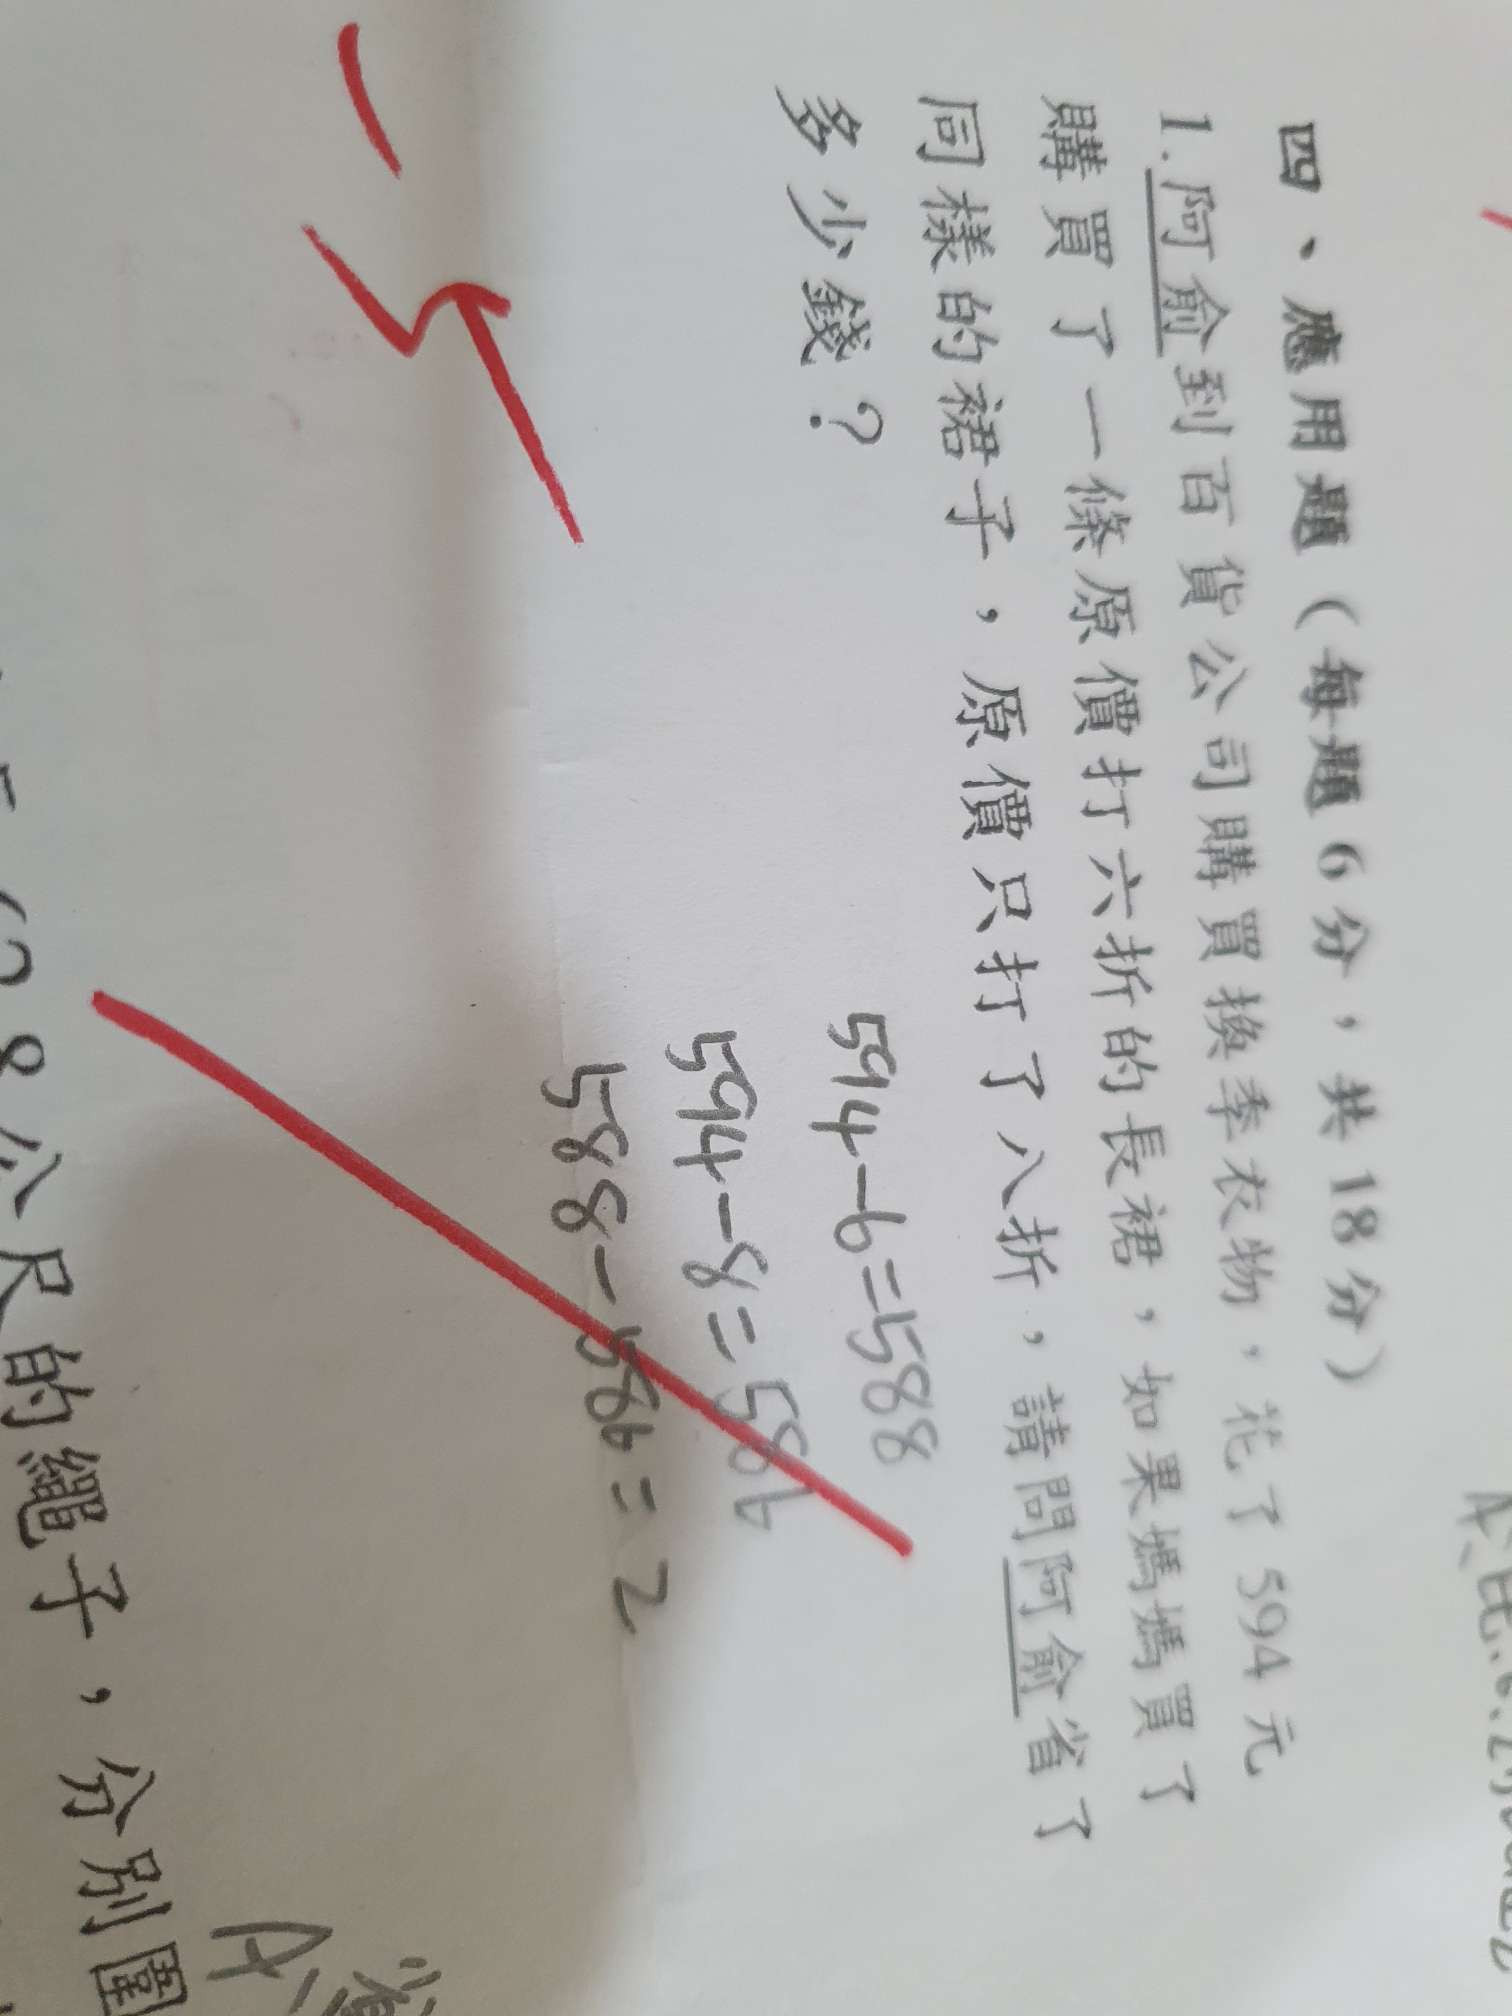 四、應用題（每題6分，共18分）
1.阿俞到百貨公司購買換季衣物，花了594元
購買了一條原價打六折的長裙，如果媽媽買了
同樣的裙子，原價只打了八折，請問阿俞省了
多少錢？
594-6=588
594-8=586
588-586=2
8公尺的繩子，分別圍
A：省